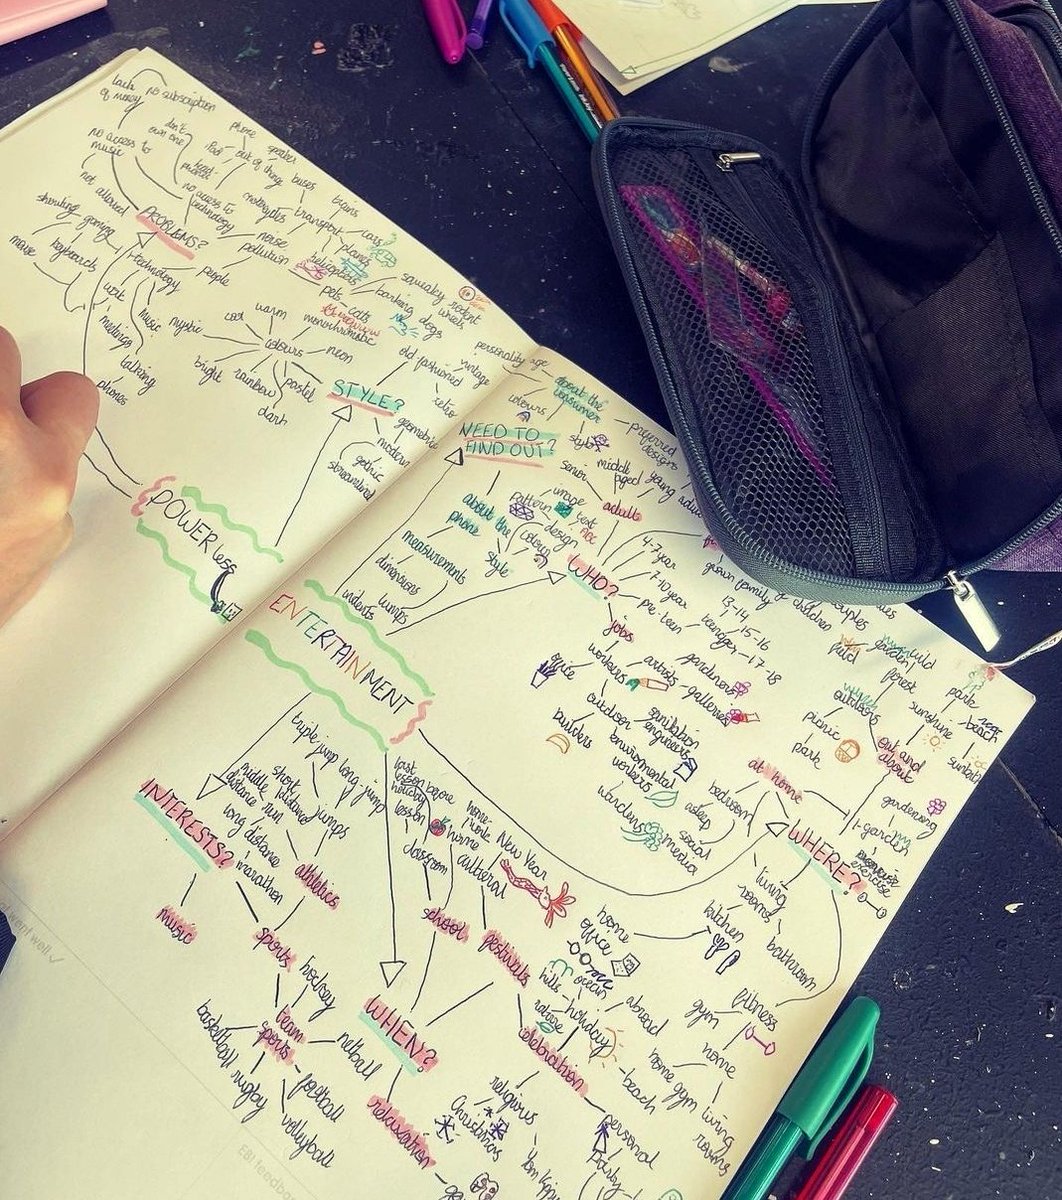 lack of money
no subscription
no access to music
don't own one
iPad
phone
speaker
out of things
head-phones
no access to technology
not allowed
PROBLEMS?
motorcycles
transport
buses
trains
cars
planes
helicopters
noise pollution
people
technology
shouting
gaming
mouse
keyboards
work
meetings
music
talking
phones
pets
cats
barking dogs
squeaky rodent wheels
mystic
cool
warm
monochromatic
colours
neon
bright
rainbow
pastel
dark
STYLE?
old fashioned
vintage
retro
geometric
modern
gothic
streamlined
POWER less
ENTERTAINMENT
NEED TO FIND OUT?
personality
age
about the consumer
colours
style
preferred designs
about the phone
measurements
dimensions
indents
style
pattern
image
text
design
colour
WHO?
adults
senior
middle aged
young adult
4-7 year
7-10 year
pre-teen
teenager
13-14
15-16
17-18
grown family
jobs
workers
office
builders
artists
galleries
gardeners
outdoor
sanitation engineers
environmental workers
wardens
WHERE?
at home
bedroom
asleep
social media
living rooms
kitchen
bathroom
home office
out and about
outdoors
picnic
park
field
garden
forest
sunshine
park
beach
sunbathe
gardening
garden
exercise
fitness
gym
home
home gym
living rooms
INTERESTS?
music
sports
athletics
triple jump
long-jump
jumps
short distance
middle distance
run
long distance
marathon
team sports
hockey
netball
football
volleyball
rugby
basketball
WHEN?
school
last lesson before holiday
lesson
home-work
home
classroom
cultural
New Year
festivals
celebration
religious
Christmas
Yom Kippur
personal
party
holiday
hills
ocean
abroad
beach
relaxation
EBI feedback
went well